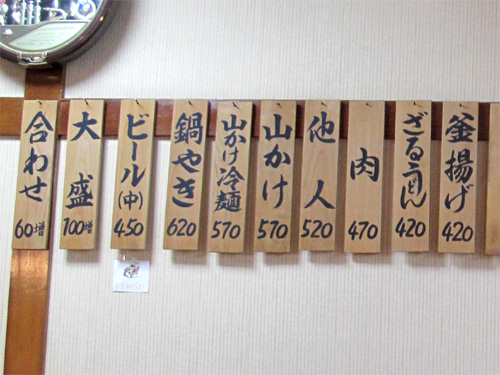 釜揚げ
420
ざるうどん
420
肉
470
他人
520
山かけ
570
山かけ冷麺
570
鍋やき
620
ビール(中)
450
大盛
100増
合わせ
60増